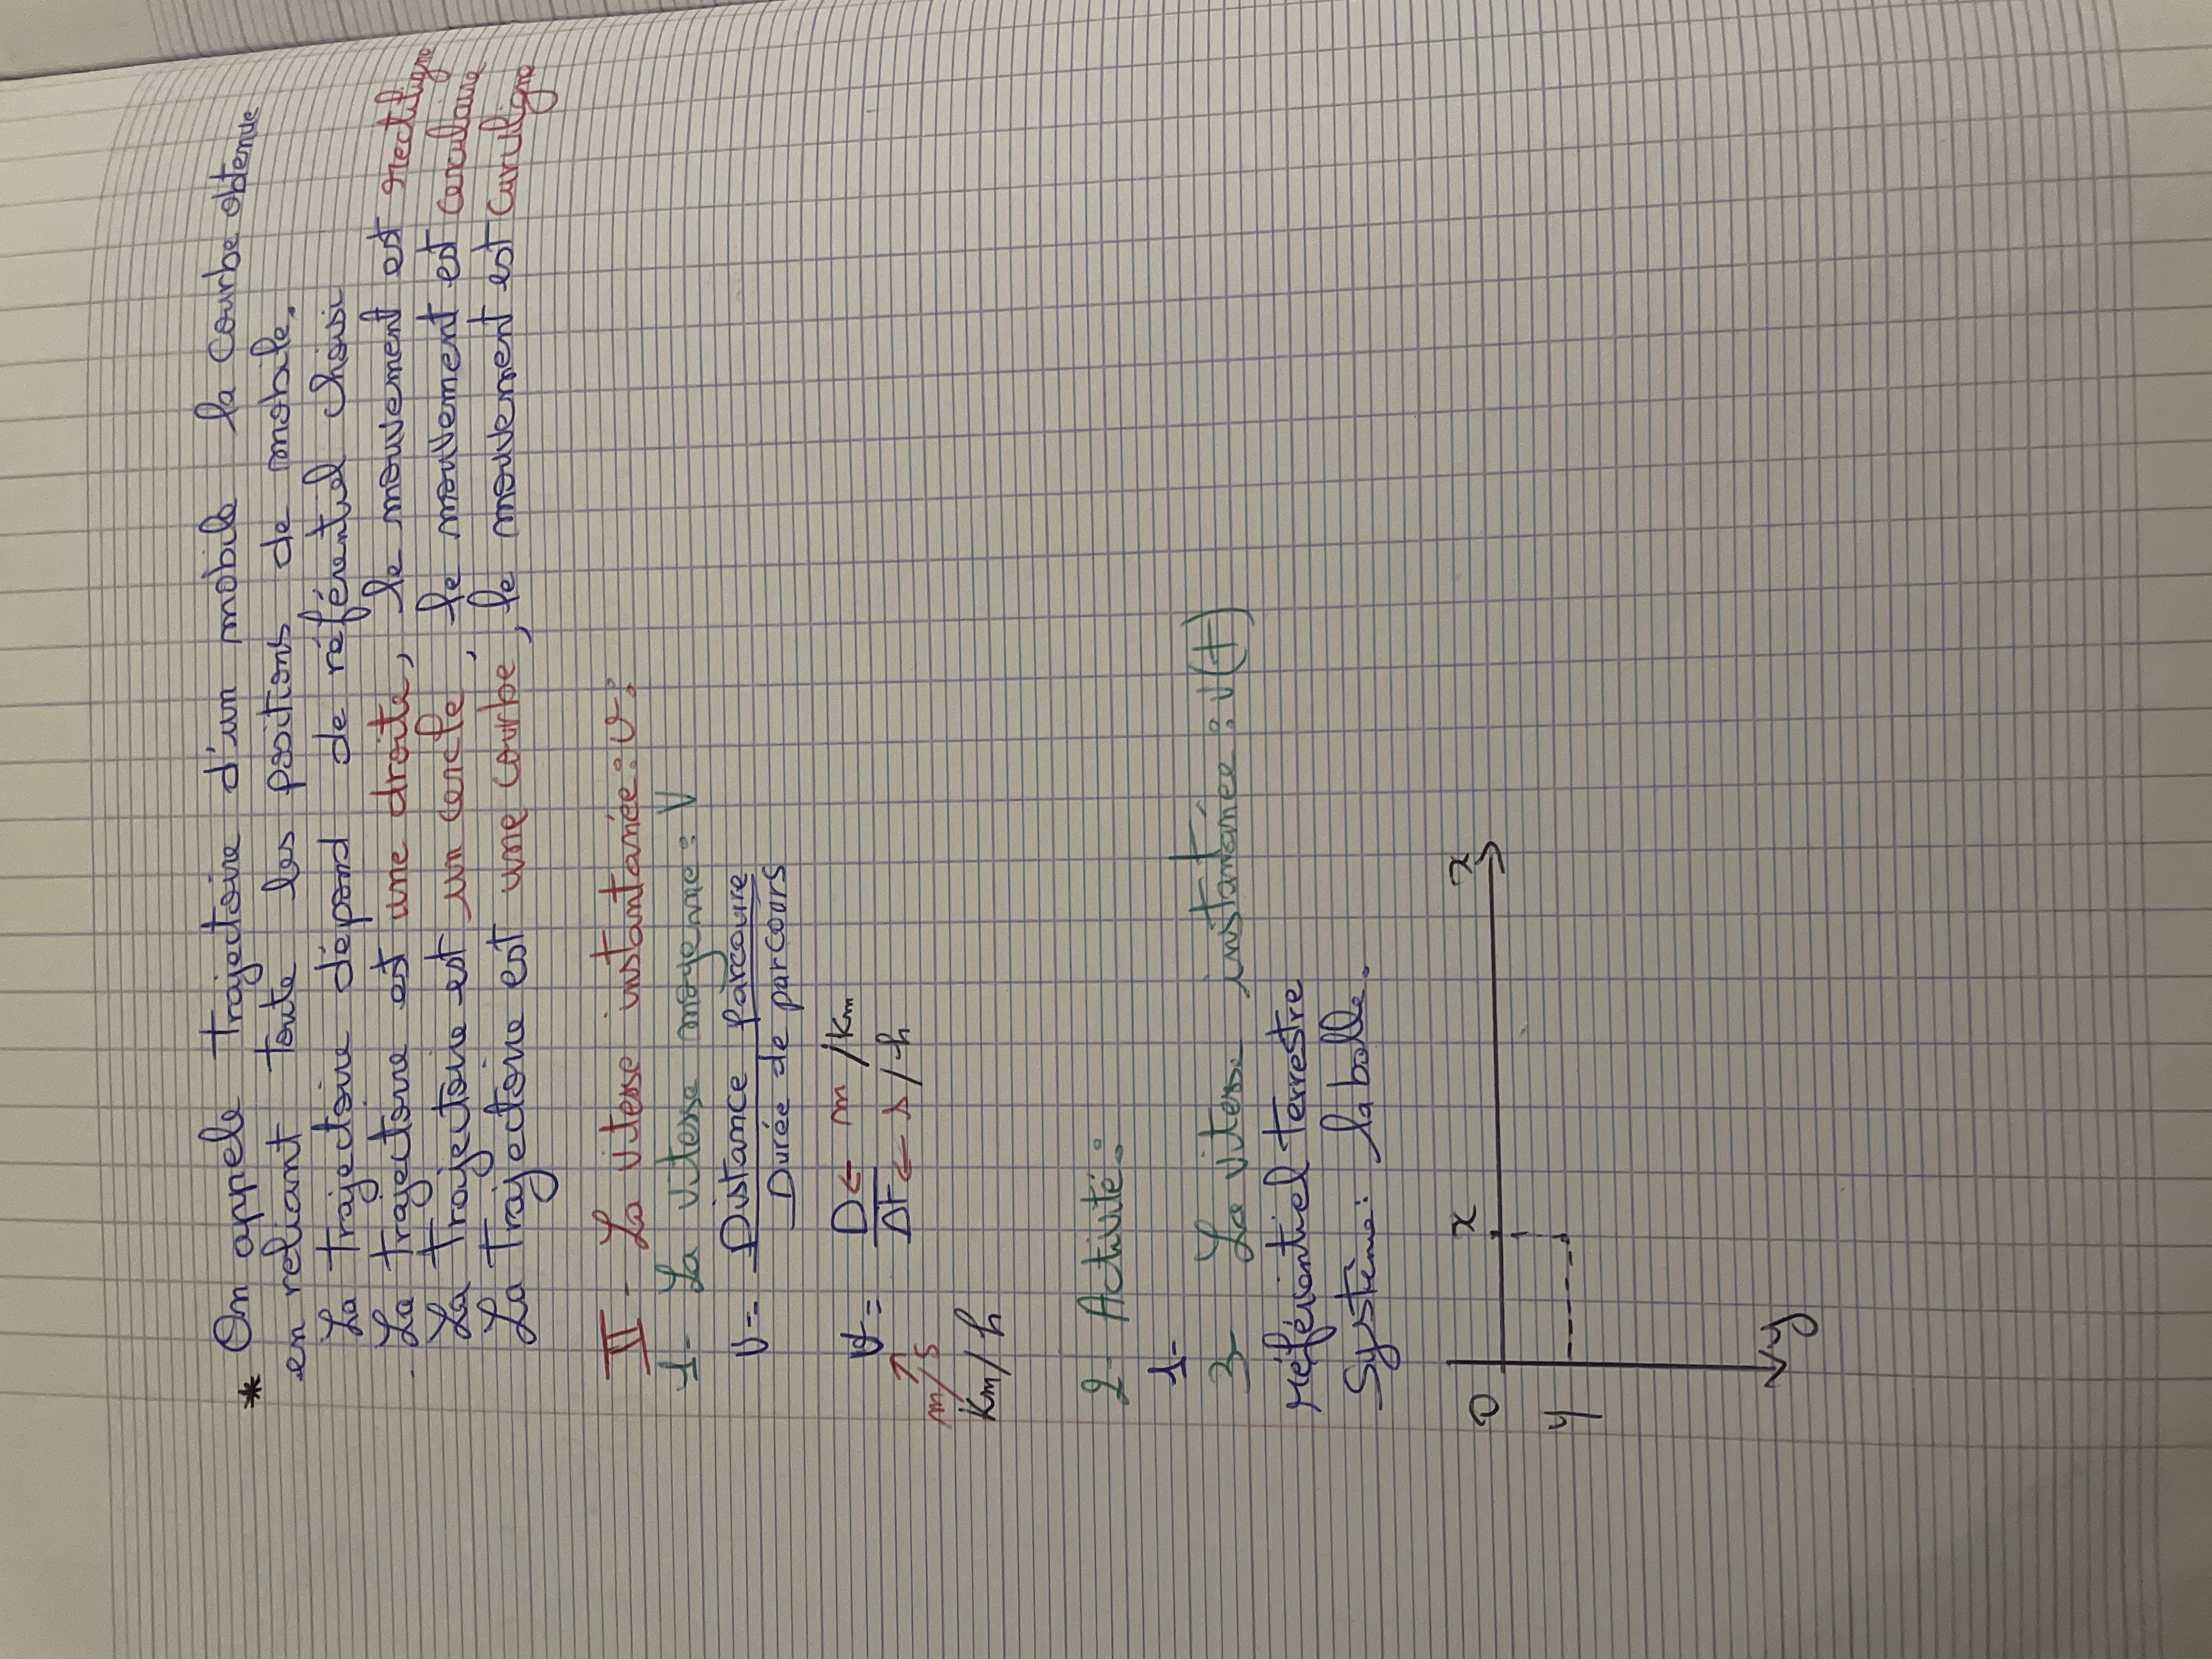 * On appele trajectoire d'un mobile la courbe obtenue
en reliant toute les positions de mobile.
La trajectoire dépond de référentiel choisi
. La trajectoire est une droite, le mouvement est rectiligne
La trajectoire est un cercle, le mouvement est circulaire
La trajectoire est une courbe, le mouvement est curviligne
II - La vitesse instantanée : v :
1- La vitesse moyenne : V
V = Distance parcourre
Durée de parcours
V = D ← m /km
Δt ← s / h
m/s
Km/h
2- Activité :
1-
3- La vitesse instantanée : v(t)
référientiel terrestre
Système : la balle.
O x x
y
y